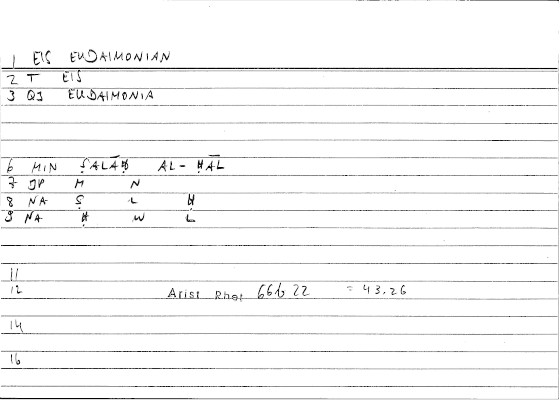 1 EIS EUDAIMONIAN
2 T EIS
3 QI EUDAIMONIA
6 MIN ṢALĀḤ AL-ḤĀL
7 JP M N
8 NA Ṣ L Ḥ
9 NA Ḥ W L
11
12 Arist Rhet 66b 22 = 43.26
14
16